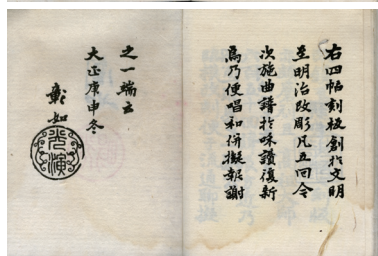 右四帖刻板創於文明
至明治改彫凡五回今
次施曲譜於味讃復新
焉乃便唱和併擬報謝
之一端云
大正庚申冬
彰如